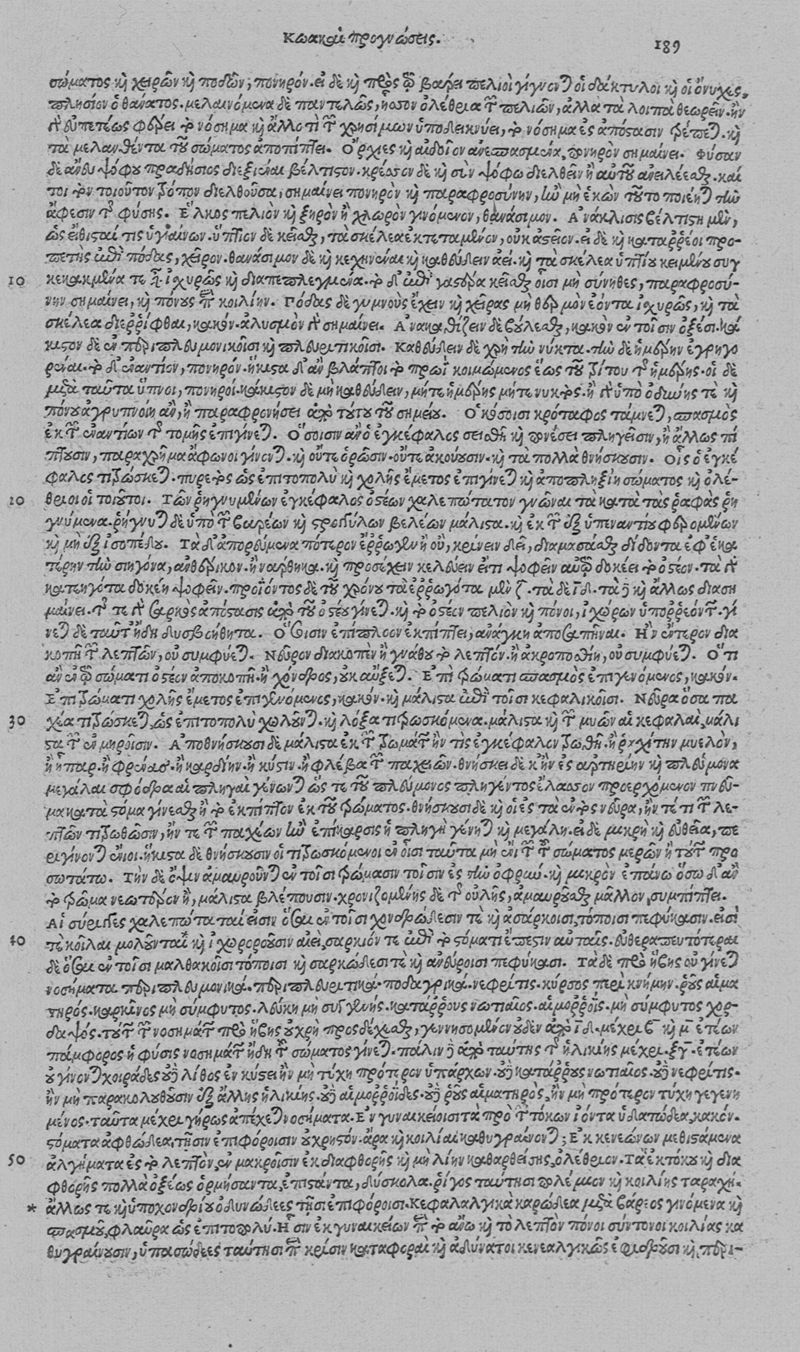 Κωακαὶ προγνώσεις. 189
σώματος καὶ χειρῶν καὶ ποδῶν, πονηρόν. εἰ δὲ καὶ πρὸς τῷ βάρει πελιοὶ γίγνονται οἱ δάκτυλοι καὶ οἱ ὄνυχες,
πλησίον ὁ θάνατος. μελαινόμενα δὲ παντελῶς, ἧσσον ὀλέθρια τῶν πελιῶν, ἀλλὰ τὰ λοιπὰ θεωρεῖν. ἢν
γὰρ εὐπετέως φέρει τὸ νόσημα καὶ ἄλλο τι τῶν χρησίμων ὑποδεικνύει, τὸ νόσημα ἐς ἀπόστασιν τρέπεται. καὶ
τὰ μελανθέντα τοῦ σώματος ἀποπίπτει. Ὄρχιες καὶ αἰδοῖον ἀνεσπασμένα, πονηρὸν σημαίνει. Φῦσαν
δὲ ἄνευ ψόφου πραδήσιος διεξιέναι βέλτιστον. κρέσσον δὲ καὶ σὺν ψόφῳ διελθεῖν ἢ αὐτοῦ ἀνειλέεσθαι. καί
τοι τὸν τοιοῦτον τρόπον διελθοῦσα, σημαίνει πονηρὸν καὶ παραφροσύνην, ἢν μὴ ἑκὼν τοῦτο ποιέηται τὴν
ἄφεσιν τῆς φύσης. Ἕλκος πελιὸν καὶ ξηρὸν ἢ χλωρὸν γινόμενον, θανάσιμον. Ἀνάκλισις βελτίστη μὲν,
ὡς εἴθισταί τις ὑγιαίνων. ὕπτιον δὲ κεῖσθαι, τὰ σκέλεα ἐκτεταμένον, οὐκ ἀστεῖον. εἰ δὲ καὶ καταρρέοι προ-
πετὴς ἐπὶ πόδας, χεῖρον. θανάσιμον δὲ καὶ κεχηνέναι καὶ καθεύδειν ἀεί. καὶ τὰ σκέλεα ὑπτίου κειμένου συγ
10 κεκαμμένα τε εἶναι ἰσχυρῶς καὶ διαπεπλεγμένα. τὸ δ' ἐπὶ γαστέρα κεῖσθαι οἷσι μὴ σύνηθες, παραφροσύ-
νην σημαίνει, καὶ πόνους περὶ κοιλίην. Πόδας δὲ γυμνοὺς ἔχειν καὶ χεῖρας μὴ θερμὸν ἐόντα ἰσχυρῶς, καὶ τὰ
σκέλεα διερρῖφθαι, κακόν. ἀλυσμὸν γὰρ σημαίνει. Ἀνακαθίζειν δὲ βούλεσθαι, κακὸν ἐν τοῖσιν ὀξέσι. κά
κιστον δὲ ἐν περιπλευμονικοῖσι καὶ πλευριτικοῖσι. Καθεύδειν δὲ χρὴ τὴν νύκτα. τὴν δὲ ἡμέρην ἐγρηγο
ρέναι. τὸ δ' ἐναντίον, πονηρόν. ἥκιστα δ' ἂν βλάπτοι τὸ πρωῒ κοιμώμενος ἕως τοῦ τρίτου τῆς ἡμέρης. οἱ δὲ
μετὰ ταῦτα ὕπνοι, πονηροί. κάκιστον δὲ μὴ καθεύδειν, μήτε ἡμέρης μήτε νυκτός. ἢ γὰρ ὑπὸ ὀδύνης τε καὶ
πόνου ἀγρυπνοίη ἂν, ἢ παραφρονήσει ἀπὸ τούτου τοῦ σημείου. Ὁκόσοισι κρόταφος τάμνεται, σπασμὸς
ἐκ τῶν ἐναντίων τῆς τομῆς ἐπιγίνεται. Ὁσοῖσιν ἂν ὁ ἐγκέφαλος σεισθῇ καὶ πονέσει πληγεῖσιν, ἢ ἄλλως πί
πτουσιν, παραχρῆμα ἄφωνοι γίνονται. καὶ οὔτε ὁρῶσιν. οὔτε ἀκούουσιν. καὶ τὰ πολλὰ θνήσκουσιν. Οἷς ὁ ἐγκέ
φαλος τιτρώσκεται. πυρετὸς ὡς ἐπιτοπολὺ καὶ χολῆς ἔμετος ἐπιγίνεται καὶ ἀποπληξίη σώματος καὶ ὀλέ-
20 θριοι οἱ τοιοῦτοι. Τῶν ῥηγνυμένων ἐγκέφαλος ὀστέων χαλεπώτατον γνῶναι τὰ κατὰ τὰς ῥαφὰς ῥη
γνύμενα. ῥήγνυται δὲ ὑπὸ τῶν βαρέων καὶ στρογγύλων βελέων μάλιστα. καὶ ἐκ τῶν ἐξ ὑπεναντίου φερομένων
καὶ μὴ ἐξ ἰσοπέδου. Τὰ δ' ἀπορεύμενα πότερον ἔρρωγεν ἢ οὔ, κρίνειν δεῖ, διαμασᾶσθαι διδόντα ἐφ' ἑκα
τέρην τὴν σιηγόνα, ἀνθέρικον. ἢ νάρθηκα. καὶ προσέχειν κελεύειν εἴ τι ψοφεῖν αὐτῷ δοκεῖ τὸ ὀστέον. τὰ γὰρ
κατεηγότα δοκέῃ ψοφεῖν. προϊόντος δὲ τοῦ χρόνου τὰ ἐρρωγότα μὲν ζ. τὰ δὲ ιδ. τὰ δὲ καὶ ἄλλως διαση
μαίνει. τῆς τε γὰρ σαρκὸς ἀπόστασις ἀπὸ τοῦ ὀστέου γίνεται. καὶ τὸ ὀστέον πελιὸν καὶ πόνοι, ἰχώρων ὑπορρεόντων. γί
νεται δὲ ταῦτ' ἤδη δυσβοήθητα. Ὅσοισιν ἐπίπλοον ἐκπίπτει, ἀνάγκη ἀποσαπῆναι. Ἢν ἔντερον δια
κοπῇ τῶν λεπτῶν, οὐ συμφύεται. Νεῦρον διακοπὲν ἢ γνάθου τὸ λεπτόν. ἢ ἀκροποσθίη, οὐ συμφύεται. Ὅτι
ἂν ἐν τῷ σώματι ὀστέον ἀποκοπῇ. ἢ χόνδρος, οὐκ αὔξεται. Ἐπὶ τρώματι σπασμὸς ἐπιγενόμενος, κακόν.
Ἐπὶ τρώματι χολῆς ἔμετος ἐπιγενόμενος, κακόν. καὶ μάλιστα ἐπὶ τοῖσι κεφαλικοῖσι. Νεῦρα ὅσα πα
30 χέα τιτρώσκεται, ὡς ἐπιτοπολὺ χωλοῦνται. καὶ λοξὰ τιτρωσκόμενα. μάλιστα καὶ τῶν μυῶν αἱ κεφαλαὶ, μάλι
στα τῶν ἐν μηροῖσιν. Ἀποθνήσκουσι δὲ μάλιστα ἐκ τῶν τρωμάτων ἤν τις ἐγκέφαλον τρωθῇ. ἢ ῥαχίτην μυελὸν,
ἢ ἧπαρ. ἢ φρένας. ἢ καρδίην. ἢ κύστιν. ἢ φλέβα τῶν παχειῶν. θνήσκει δὲ κἢν ἐς ἀρτηρίην καὶ πλεύμονα
μεγάλαι σφόδρα αἱ πληγαὶ γένωνται ὥς τε τοῦ πλεύμονος πληγέντος ἔλασσον προερχόμενον πνεῦ-
μα κατὰ στόμα γίνεσθαι ἢ τὸ ἐκπίπτον ἐκ τοῦ τρώματος. θνήσκουσι δὲ καὶ οἱ ἐς τὰ ἐντὸς νεῦρα, ἤν τέ τι τῶν λε-
πτῶν τιτρωθῶσιν, ἤν τε τῶν παχέων ἢν ἐπικάρσιος ἡ πληγὴ γένηται καὶ μεγάλη. εἰ δὲ μικρὴ καὶ εὐθεῖα, πε
ριγίνονται ἔνιοι. ἥκιστα δὲ θνήσκουσιν οἱ τιτρωσκόμενοι ἐν οἷσι ταῦτα μὴ ἔνι τῶν τοῦ σώματος μερῶν ἢ τούτων προ
σωτάτω. Τὴν δὲ ὄψιν ἀμαυροῦνται ἐν τοῖσι τρώμασιν τοῖσιν ἐς τὴν ὀφρὺν. καὶ μικρὸν ἐπάνω ὅσῳ δ' ἂν
τὸ τρῶμα νεώτερον ᾖ, μάλιστα βλέπουσιν. χρονιζομένης δὲ τῆς οὐλῆς, ἀμαυροῦσθαι μᾶλλον, συμπίπτει.
Αἱ σύριγγες χαλεπώταται εἰσιν ὅσαι ἐν τοῖσι χονδρώδεσίν τε καὶ ἀσάρκοισι, τόποισι πεφύκασιν. εἰσί
40 τε κοῖλαι μολοῦνται καὶ ἰχωρορέουσιν αἰεὶ, σαρκίον τε ἐπὶ τῷ στόματι ἔπεστιν αὐταῖς. εὐθεραπευτότεραι
δὲ ὅσαι ἐν τοῖσι μαλθακοῖσι τόποισι καὶ σαρκώδεσί τε καὶ ἀνεύροισι πεφύκασι. Τὰ δὲ πρὸ ἥβης οὐ γίνεται
νοσήματα. περιπλευμονική. περιπλευριτική. ποδαγρική. νεφρῖτις. κύρσος περὶ κνήμην. ῥοῦς αἱμα
τηρός. καρκῖνος μὴ σύμφυτος. λεύκη μὴ συγγενής. κατάρρους νωτιαῖος. αἱμορροῒς. μὴ σύμφυτος χορ-
δαψός. τούτων τῶν νοσημάτων πρὸ ἥβης οὐ χρὴ προσδέχεσθαι, γεννησόμενον οὐδέν ἀπὸ ιδ. μέχρι β καὶ μ ἐτέων
πάμφορος ἡ φύσις νοσημάτων ἤδη τοῦ σώματος γίνεται. πάλιν δὲ ἀπὸ ταύτης τῆς ἡλικίης μέχρι ξγ ἐτέων
οὐ γίνονται χοιράδες οὐδὲ λίθος ἐν κύστει ἢν μὴ τύχῃ πρότερον ὑπάρχων. οὐδὲ κατάρρους νωτιαῖος. οὐδὲ νεφρῖτις.
ἢν μὴ παρακολουθοῦσιν ἐξ ἄλλης ἡλικίης. οὐδὲ αἱμορροΐδες. οὐδὲ ῥοῦς αἱματηρὸς, ἢν μὴ πρότερον τύχῃ γεγενη
μένος. ταῦτα μέχρι γήρως ἀπέχεται νοσήματα. Ἐν γυναικείοισι τὰ πρὸ τῶν τόκων ἰόντα ὑδατώδεα, κακόν.
στόματα ἀφθώδεα, τῇσιν ἐπιφόροισιν οὐ χρηστόν. ἆρα καὶ κοιλίαι καθυγραίνονται; Ἐκ κενεώνων μεθιστάμενα
50 ἀλγήματα ἐς τὸ λεπτὸν, ἐν μακροῖσιν ἐκ διαφθορῆς καὶ μὴ λίην καθαρθείσης, ὀλέθριον. Τὰ ἐκ τόκου καὶ δια
φθορῆς πολλὰ ὀξέως ὁρμήσαντα, ἐπιστάντα, δύσκολα. ῥῖγος ταύτῃσι πολέμιον καὶ κοιλίης ταραχή.
* ἄλλως τε καὶ ὑποχονδρίου ὀδυνώδεες τῇσι ἐπιφόροισι. Κεφαλαλγικὰ καρώδεα μετὰ βάρεος γινόμενα καὶ
σπασμοῦ, φλαῦρα ὡς ἐπιτοπολύ. Ἧσιν ἐκ γυναικείων περὶ τὸ ἄνω καὶ τὸ λεπτὸν πόνοι σύντονοι κοιλίας κα
θυγραίνουσιν, ὑπασώδεες ταύτῃσι περὶ κρίσιν καταφοραὶ καὶ ἀδύνατοι κενεαλγικῶς ἐφιδροῦσι καὶ περι-